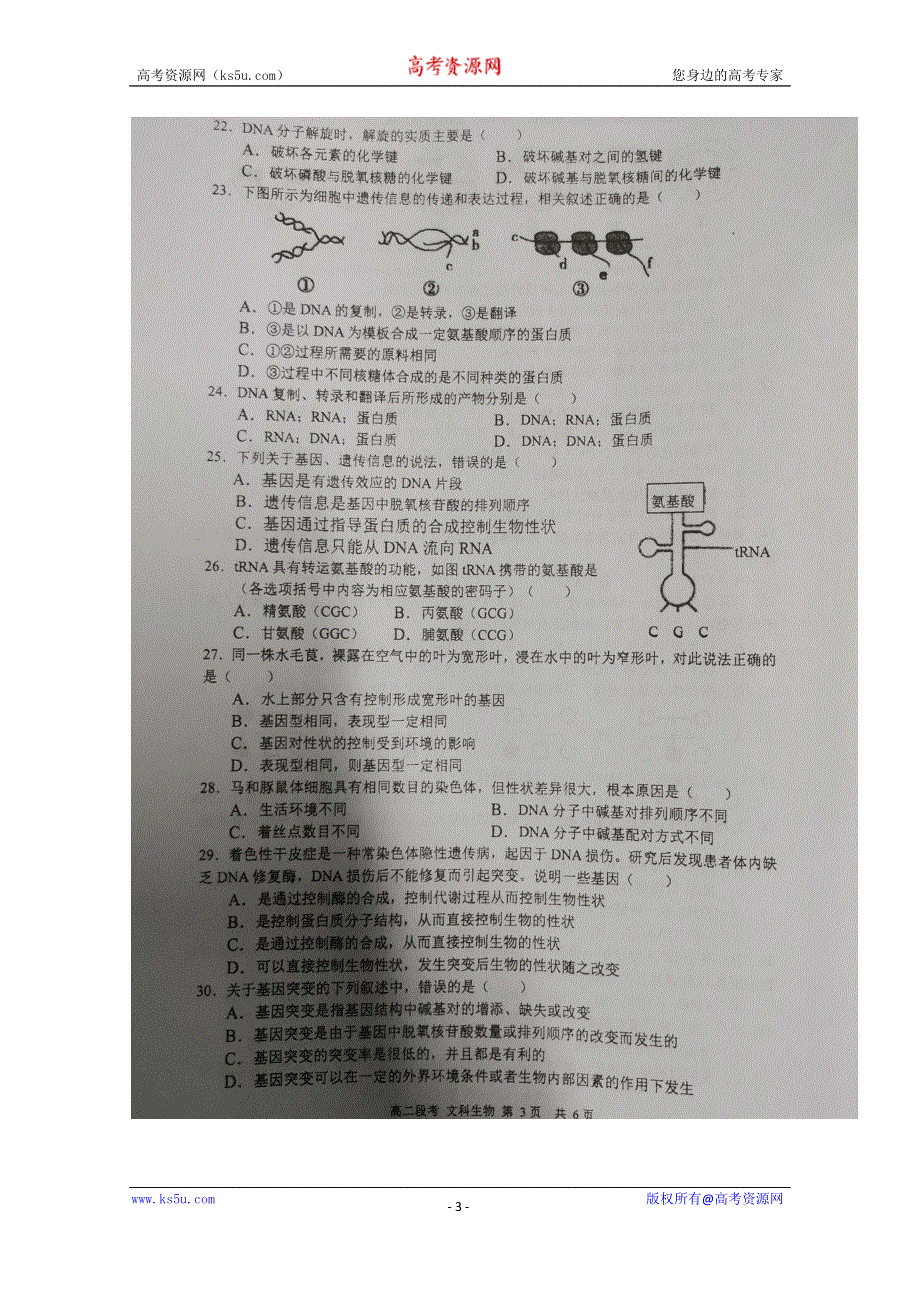 高考资源网（ks5u.com）
高考资源网
您身边的高考专家
22．DNA 分子解旋时，解旋的实质主要是（　　）
A．破坏各元素的化学键　B．破坏碱基对之间的氢键
C．破坏磷酸与脱氧核糖的化学键　D．破坏碱基与脱氧核糖间的化学键
23．下图所示为细胞中遗传信息的传递和表达过程，相关叙述正确的是（　　）
a
b
c
c
d
e
f
①　②　③
A．①是 DNA 的复制，②是转录，③是翻译
B．③是以 DNA 为模板合成一定氨基酸顺序的蛋白质
C．①②过程所需要的原料相同
D．③过程中不同核糖体合成的是不同种类的蛋白质
24．DNA 复制、转录和翻译后所形成的产物分别是（　　）
A．RNA；RNA；蛋白质　B．DNA；RNA；蛋白质
C．RNA；DNA；蛋白质　D．DNA；DNA；蛋白质
25．下列关于基因、遗传信息的说法，错误的是（　　）
A．基因是有遗传效应的 DNA 片段
B．遗传信息是基因中脱氧核苷酸的排列顺序
C．基因通过指导蛋白质的合成控制生物性状
D．遗传信息只能从 DNA 流向 RNA
氨基酸
tRNA
C G C
26．tRNA 具有转运氨基酸的功能，如图 tRNA 携带的氨基酸是
（各选项括号中内容为相应氨基酸的密码子）（　　）
A．精氨酸（CGC）　B．丙氨酸（GCG）
C．甘氨酸（GGC）　D．脯氨酸（CCG）
27．同一株水毛茛，裸露在空气中的叶为宽形叶，浸在水中的叶为窄形叶，对此说法正确的
是（　　）
A．水上部分只含有控制形成宽形叶的基因
B．基因型相同，表现型一定相同
C．基因对性状的控制受到环境的影响
D．表现型相同，则基因型一定相同
28．马和豚鼠体细胞具有相同数目的染色体，但性状差异很大，根本原因是（　　）
A．生活环境不同　B．DNA 分子中碱基对排列顺序不同
C．着丝点数目不同　D．DNA 分子中碱基配对方式不同
29．着色性干皮症是一种常染色体隐性遗传病，起因于 DNA 损伤。研究后发现患者体内缺
乏 DNA 修复酶，DNA 损伤后不能修复而引起突变。说明一些基因（　　）
A．是通过控制酶的合成，控制代谢过程从而控制生物性状
B．是控制蛋白质分子结构，从而直接控制生物的性状
C．是通过控制酶的合成，从而直接控制生物的性状
D．可以直接控制生物性状，发生突变后生物的性状随之改变
30．关于基因突变的下列叙述中，错误的是（　　）
A．基因突变是指基因结构中碱基对的增添、缺失或改变
B．基因突变是由于基因中脱氧核苷酸数量或排列顺序的改变而发生的
C．基因突变的突变率是很低的，并且都是有利的
D．基因突变可以在一定的外界环境条件或者生物内部因素的作用下发生
高二段考 文科生物 第 3 页 共 6 页
www.ks5u.com
- 3 -
版权所有@高考资源网